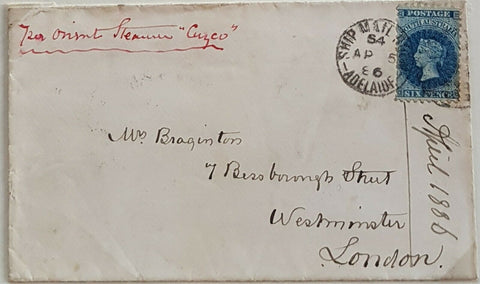 Per Orient Steamer "Cuzco"
SHIP MAIL
54
AP 5
86
ADELAIDE
POSTAGE
SOUTH AUSTRALIA
SIX PENCE
Mrs Braginton
7 Bessborough Street
Westminster
London.
April 1886